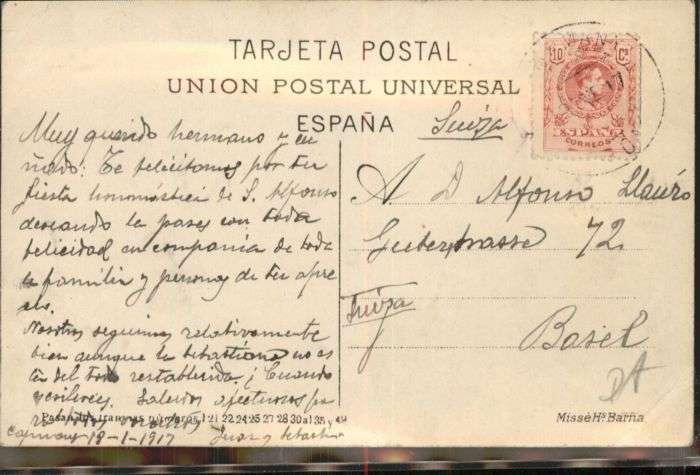 TARJETA POSTAL
UNION POSTAL UNIVERSAL
ESPAÑA
10 Cs
ESPAÑA
CORREOS
Muy querido hermano y cu
ñado: Te felicitamos por tu
fiesta honomástica de S. Alfonso
deseando la pases con toda
felicidad en compañia de toda
la familia y personas de tu apre
cio.
Nosotros seguimos relativamente
bien aunque la Sebastiana no es
tá del todo restablecida. ¡Cuando
escribes. Saludos afectuosos pa
19-1-1917 Juan y Sebastiana
Suiza
A D Alfonso Llauró
72
Suiza
Basel
Missé Hs Barña